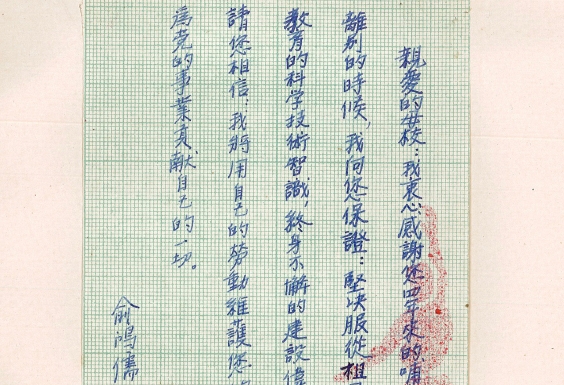 親愛的母校：我衷心感謝您四年來的哺
離別的時候，我向您保證：堅决服從祖
教育的科学技術智識，終身不懈的建設偉
請您相信：我將用自己的勞動維護您
為党的事業貢献自己的一切。
俞鴻儒